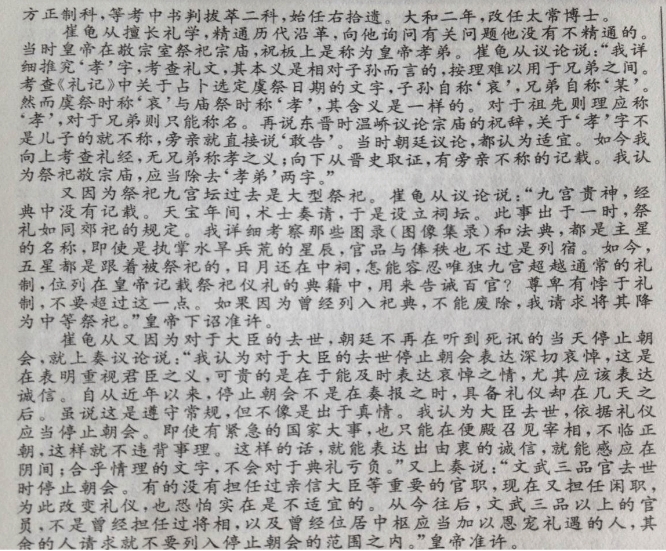 方正制科，等考中书判拔萃二科，始任右拾遗。大和二年，改任太常博士。
崔龟从擅长礼学，精通历代沿革，向他询问有关问题他没有不精通的。
当时皇帝在敬宗室祭祀宗庙，祝板上是称为皇帝孝弟。崔龟从议论说：“我详
细推究‘孝’字，考查礼文，其本义是相对子孙而言的，按理难以用于兄弟之间。
考查《礼记》中关于占卜选定虞祭日期的文字，子孙自称‘哀’，兄弟自称‘某’。
然而虞祭时称‘哀’与庙祭时称‘孝’，其含义是一样的。对于祖先则理应称
‘孝’，对于兄弟则只能称名。再说东晋时温峤议论宗庙的祝辞，关于‘孝’字不
是儿子的就不称，旁亲就直接说‘敢告’。当时朝廷议论，都认为适宜。如今我
向上考查礼经，无兄弟称孝之义；向下从晋史取证，有旁亲不称的记载。我认
为祭祀敬宗庙，应当除去‘孝弟’两字。”
又因为祭祀九宫坛过去是大型祭祀。崔龟从议论说：“九宫贵神，经
典中没有记载。天宝年间，术士奏请，于是设立祠坛。此事出于一时，祭
礼如同郊祀的规定。我详细考察那些图录（图像集录）和法典，都是主星
的名称，即使是执掌水旱兵荒的星辰，官品与俸秩也不过是列宿。如今，
五星都是跟着被祭祀的，日月还在中祠，怎能容忍唯独九宫超越通常的礼
制，位列在皇帝记载祭祀仪礼的典籍中，用来告诫百官？尊卑有悖于礼
制，不要超过这一点。如果因为曾经列入祀典，不能废除，我请求将其降
为中等祭祀。”皇帝下诏准许。
崔龟从又因为对于大臣的去世，朝廷不再在听到死讯的当天停止朝
会，就上奏议论说：“我认为对于大臣的去世停止朝会表达深切哀悼，这是
在表明重视君臣之义，可贵的是在于能及时表达哀悼之情，尤其应该表达
诚信。自从近年以来，停止朝会不是在奏报之时，具备礼仪却在几天之
后。虽说这是遵守常规，但不像是出于真情。我认为大臣去世，依据礼仪
应当停止朝会。即使有紧急的国家大事，也只能在便殿召见宰相，不临正
朝，这样就不违背事理。这样的话，就能表达出由衷的诚信，就能感应在
阴间；合乎情理的文字，不会对于典礼亏负。”又上奏说：“文武三品官去世
时停止朝会。有的没有担任过亲信大臣等重要的官职，现在又担任闲职，
为此改变礼仪，也恐怕实在是不适宜的。从今往后，文武三品以上的官
员，不是曾经担任过将相，以及曾经位居中枢应当加以恩宠礼遇的人，其
余的人请求就不要列入停止朝会的范围之内。”皇帝准许。